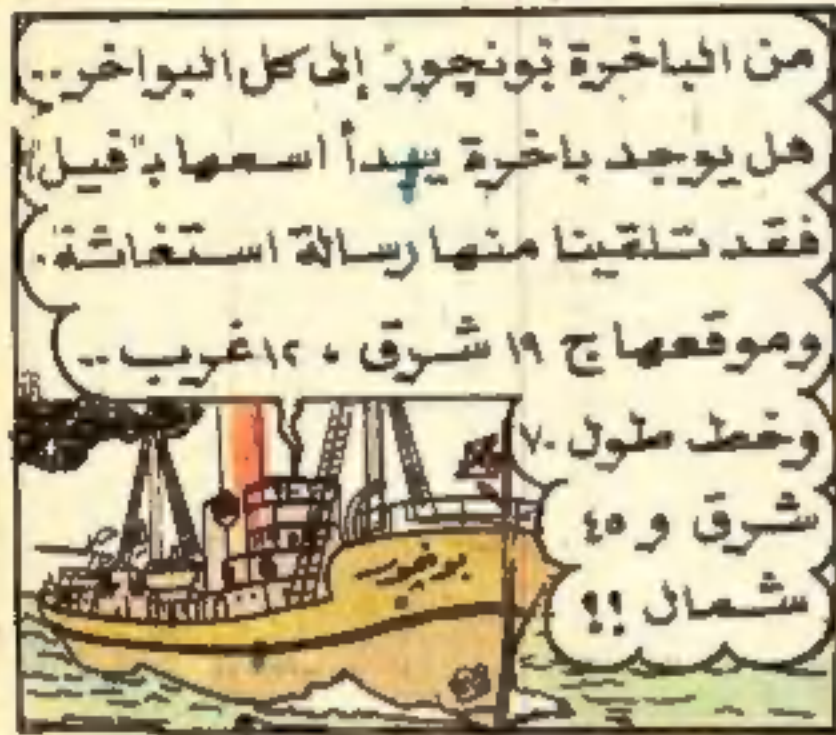 من الباخرة بونچور إلى كل البواخر..
هل يوجد باخرة يبدأ اسمها بـ"فيل"
فقد تلقينا منها رسالة استغاثة.
وموقعها ج ١٩ شرق ، ١٢ غريب ..
وخط طول ٧٠
شرق و ٤٥
شمال !!
بونچور